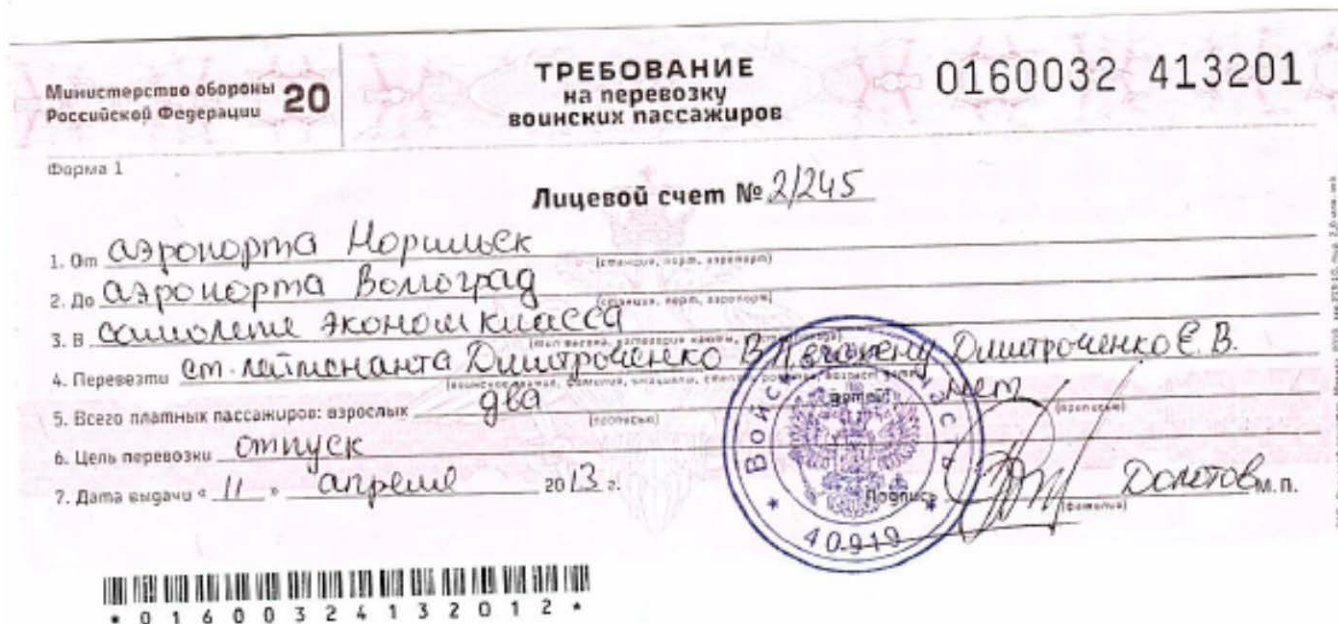 Министерство обороны
Российской Федерации
20
ТРЕБОВАНИЕ
на перевозку
воинских пассажиров
0160032 413201
Форма 1
Лицевой счет № 2/245
1. От аэропорта Норильск
(станция, порт, аэропорт)
2. До аэропорта Волгоград
(станция, порт, аэропорт)
3. В самолете эконом класса
4. Перевезти ст. лейтенанта Дмитроченко В.А. и жену Дмитроченко Е.В.
5. Всего платных пассажиров: взрослых два детей нет
(прописью) (прописью)
6. Цель перевозки отпуск
7. Дата выдачи « 11 » апреля 2013 г.
Подпись Долотов м.п.
(фамилия)
40919
*01600324132012*